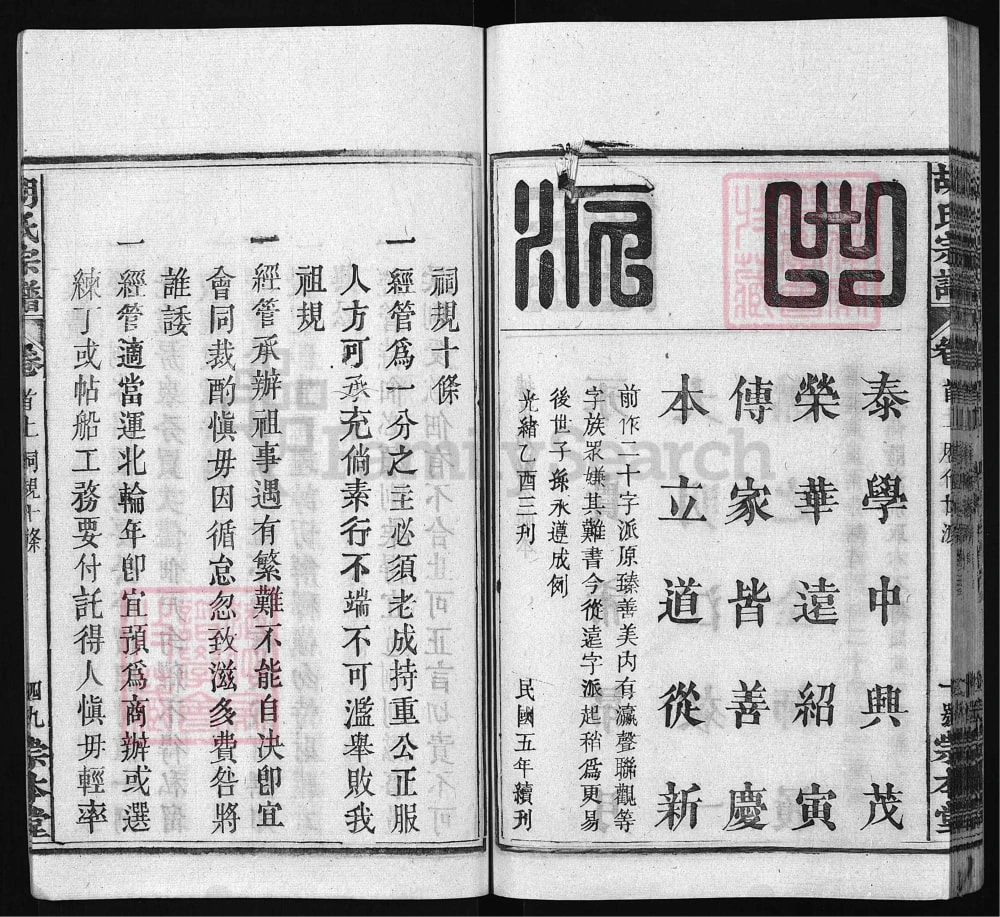 世派
泰學中興茂
榮華遠紹寅
傳家皆善慶
本立道從新
前作二十字派原臻善美內有瀛聲聯觀等
字族眾嫌其難書今從遠字派起稍為更易
後世子孫永遵成例
光緒乙酉三刊
民國五年續刊
祠規十條
一經管為一分之主必須老成持重公正服
人方可承充倘素行不端不可濫舉敗我
祖規
一經管承辦祖事遇有繁難不能自決卽宜
會同裁酌慎毋因循怠忽致滋多費咎將
誰諉
一經管適當運北輪年卽宜預為商辦或選
練丁或帖船工務要付託得人慎毋輕率
胡氏宗譜
卷首上
祠規十條
四九
崇本堂
FamilySearch